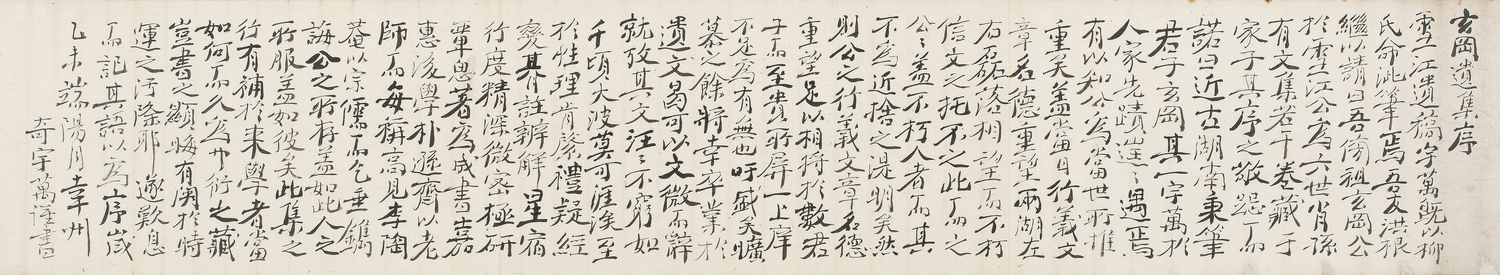 玄岡遺集序
江遺稿宇萬既以柳
氏命泚筆焉吾友洪根
繼以請曰吾傍祖玄岡公
於江公為六世肖孫
有文集若干卷藏于
家子其序之敬而
諾曰近古湖南秉筆
君子玄岡其一宇萬於
人家先蹟遇焉
有以知公為當世所推
重矣盖當日行義文
章名德重望兩湖左
右磊落相望而不朽
信文之托不之此而之
公々盖不朽人者而其
不為近捨之湜明矣然
則公之行義文章名德
重望足以相埒於數君
子而至貴所屏一上庠
不足為有無也吁盛矣曠
慕之餘將幸卒業於
遺文曷可以文微而辭
就攷其文汪々不窮如
千頃大波莫可涯涘至
於性理肯綮禮疑經
變其註辨解星宿
行度精深微密極研
覃思著為成書嘉
惠後學朴遜齋以老
師而每稱高見李陶
菴以宗儒而乞垂鐫
誨公之所存盖如此人之
所服盖如彼矣此集之
行有補於來學者當
如何而久為巾衍之藏
豈書之顯晦有関於時
運之汚隆耶遂歎息
而記其語以為序歲
乙未端陽月幸州
奇宇萬謹書